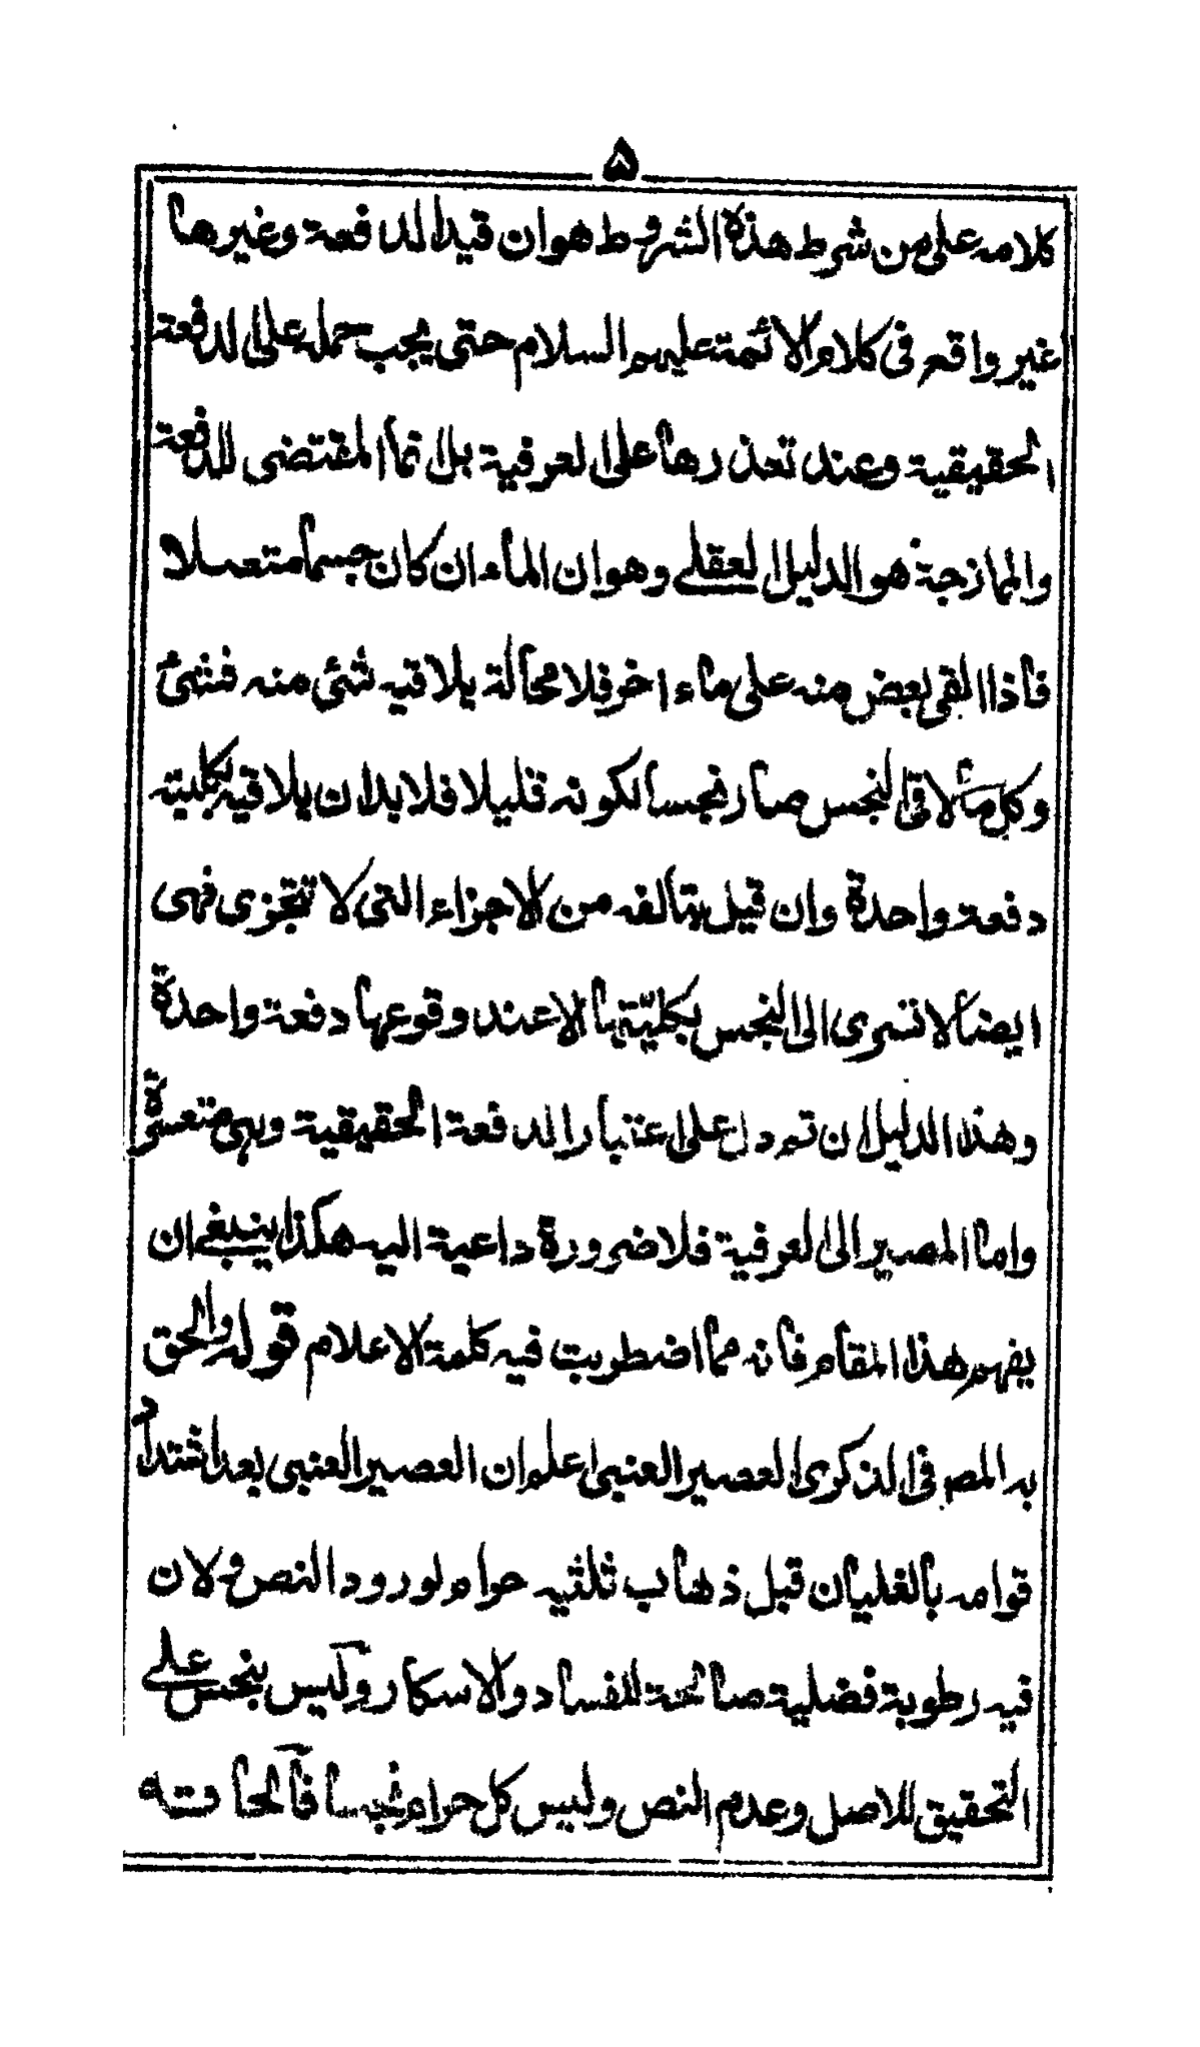 ۵
كلامه على من شرط هذه الشروط هو ان قيد الدفعة وغيرها
غير واقع فى كلام الائمة عليهم السلام حتى يجب حمله على الدفعة
الحقيقية وعند تعذرها على العرفية بل انما المقتضى للدفعة
والممازجة هو الدليل العقلے وهو ان الماء ان كان جسما متصلا
فاذا القى بعض منه على ماء اخر فلا محالة يلاقيه شئ منه فشئ
وكل ما لاقى النجس صار نجسا لكونه قليلا فلا بد ان يلاقيه بكليته
دفعة واحدة وان قيل بتالفه من الاجزاء التى لا تتجزى فهى
ايضا لا تسرى الى النجس بكليّتها الا عند وقوعها دفعة واحدة
وهذا الدليل ان تم دل على اعتبار الدفعة الحقيقية وهى متعسرة
واما المصير الى العرفية فلا ضرورة داعية اليه هكذا ينبغے ان
يفهم هذا المقام فانه مما اضطربت فيه كلمة الاعلام قوله والحق
به المص فى الذكرى العصير العنبى اعلم ان العصير العنبى بعد اشتداد
قوامه بالغليان قبل ذهاب ثلثيه حرام لورود النص و لان
فيه رطوبة فضلية صالحة للفساد والاسكار وليس بنجس علے
التحقيق للاصل وعدم النص وليس كل حرام نجسا فالحاقه